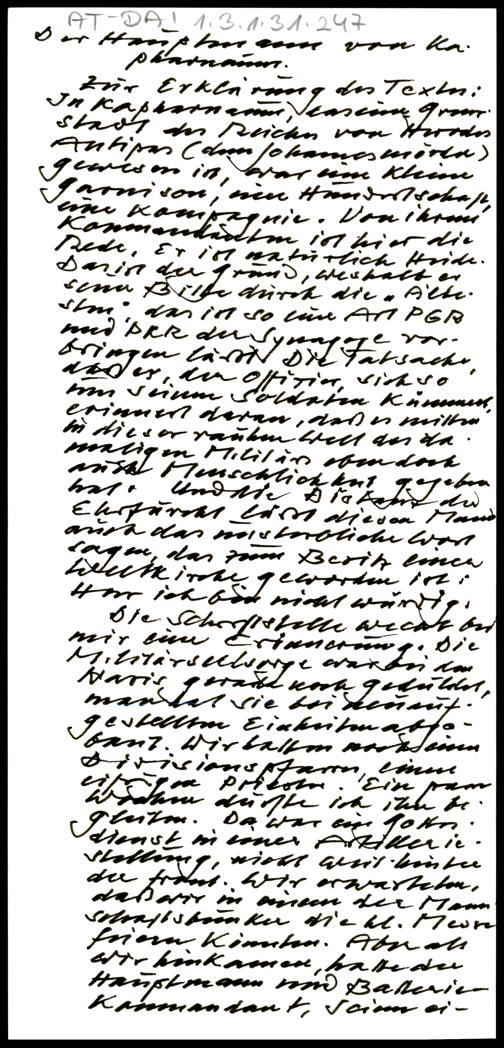 AT-DA! 1.3.1.31.247
Der Hauptmann von Ka-
pharnaum.
Zur Erklärung des Textes:
In Kapharnaum, das eine Grenz-
stadt des Reiches von Herodes
Antipas (dem Johannesmörder)
gewesen ist, war eine kleine
Garnison, eine Hundertschaft,
eine Kompagnie. Von ihrem
Kommandanten ist hier die
Rede. Er ist natürlich Heide.
Das ist der Grund, weshalb er
seine Bitte durch die „Älte-
sten", das ist so eine Art PGR
und PKR der Synagoge vor-
bringen läßt. Die Tatsache,
daß er, der Offizier, sich so
um seinen Soldaten kümmert,
erinnert daran, daß es mitten
in dieser rauhen Welt des da-
maligen Militärs eben doch
auch Menschlichkeit gegeben
hat. Und die Distanz der
Ehrfurcht läßt diesen Mann
auch das unsterbliche Wort
sagen, das zum Besitz einer
Weltkirche geworden ist:
Herr ich bin nicht würdig.
Die Schriftstelle weckt bei
mir eine Erinnerung. Die
Militärseelsorge war bei den
Nazis gerade noch geduldet,
man hat sie bei neu auf-
gestellten Einheiten abge-
baut. Wir hatten noch einen
Divisionspfarrer, einen
eifrigen Priester. Ein paar
Wochen durfte ich ihn be-
gleiten. Da war ein Gottes-
dienst in einer Artillerie-
stellung, nicht weit hinter
der Front. Wir erwarteten,
daß wir in einem der Mann-
schaftsbunker die hl. Messe
feiern könnten. Aber als
wir hinkamen, hatte der
Hauptmann und Batterie-
Kommandant, seinen ei-